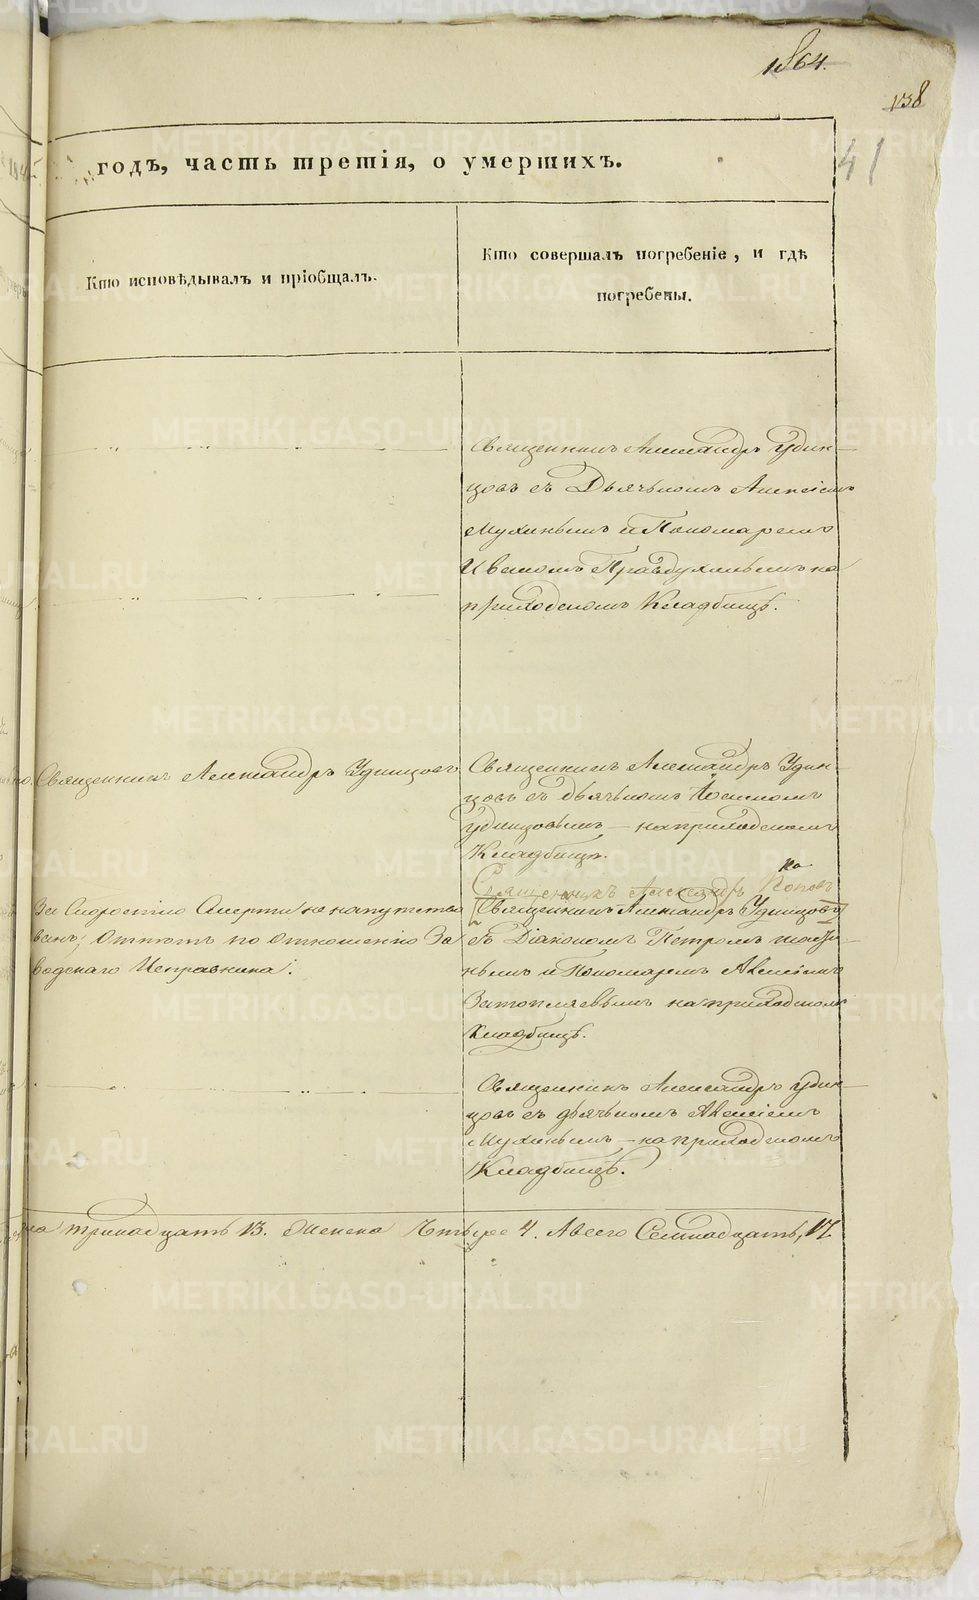 1864.
138
41
годъ, часть третія, о умершихъ.
Кто исповѣдывалъ и пріобщалъ.
Кто совершалъ погребеніе, и гдѣ
погребены.
Священникъ Александръ Удин-
цовъ съ Дьячкомъ Алексіемъ
Мухинымъ и Пономаремъ
Иваномъ на
приходскомъ Кладбищѣ.
Священникъ Александръ Удинцовъ
Священникъ Александръ Удин-
цовъ съ дьячкомъ
Удинцовымъ – на приходскомъ
Кладбищѣ.
Священникъ Александръ Поповъ
За Скоростію Смерти не напутство
ванъ; Отпѣтъ по Отношенію За
водскаго Исправника.
Священникъ Александръ Удинцовъ
съ Діакономъ Петромъ
нымъ и Пономаремъ Алексіемъ
на приходскомъ
Кладбищѣ.
Священникъ Александръ Удин-
цовъ съ дьячкомъ Алексіемъ
Мухинымъ – на приходскомъ
Кладбищѣ.
на тринадцать 13. Женска Четыре 4. А всего Семнадцать, 17.
METRIKI.GASO-URAL.RU